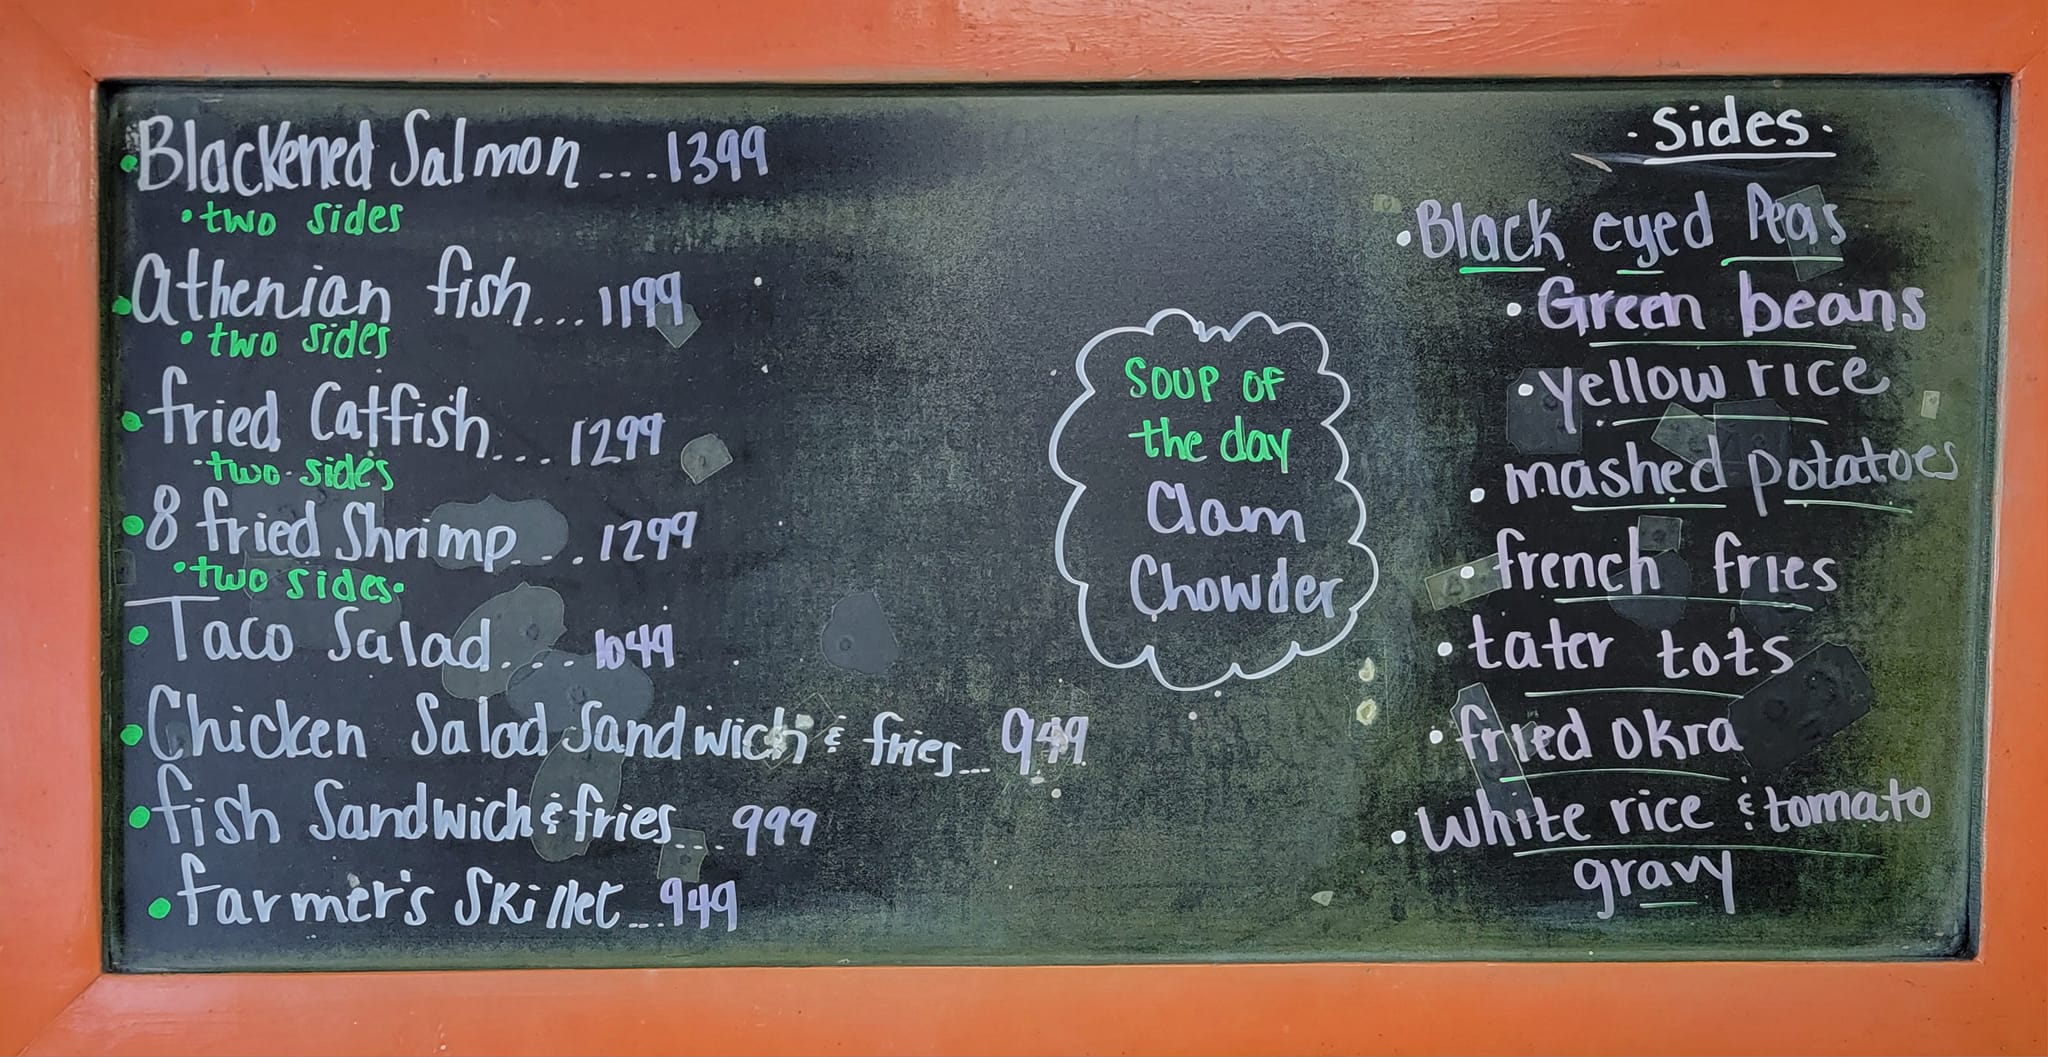 Blackened Salmon...1399
• two sides
Athenian fish...1199
• two sides
fried Catfish...1299
• two sides
8 fried Shrimp...1299
• two sides •
Taco Salad....1049
Chicken Salad Sandwich & fries...949
fish Sandwich & fries....999
farmer's Skillet...949
Soup of
the day
Clam
Chowder
• Sides •
• Black eyed Peas
• Green beans
• yellow rice
• mashed potatoes
• french fries
• tater tots
• fried okra
• white rice & tomato
gravy